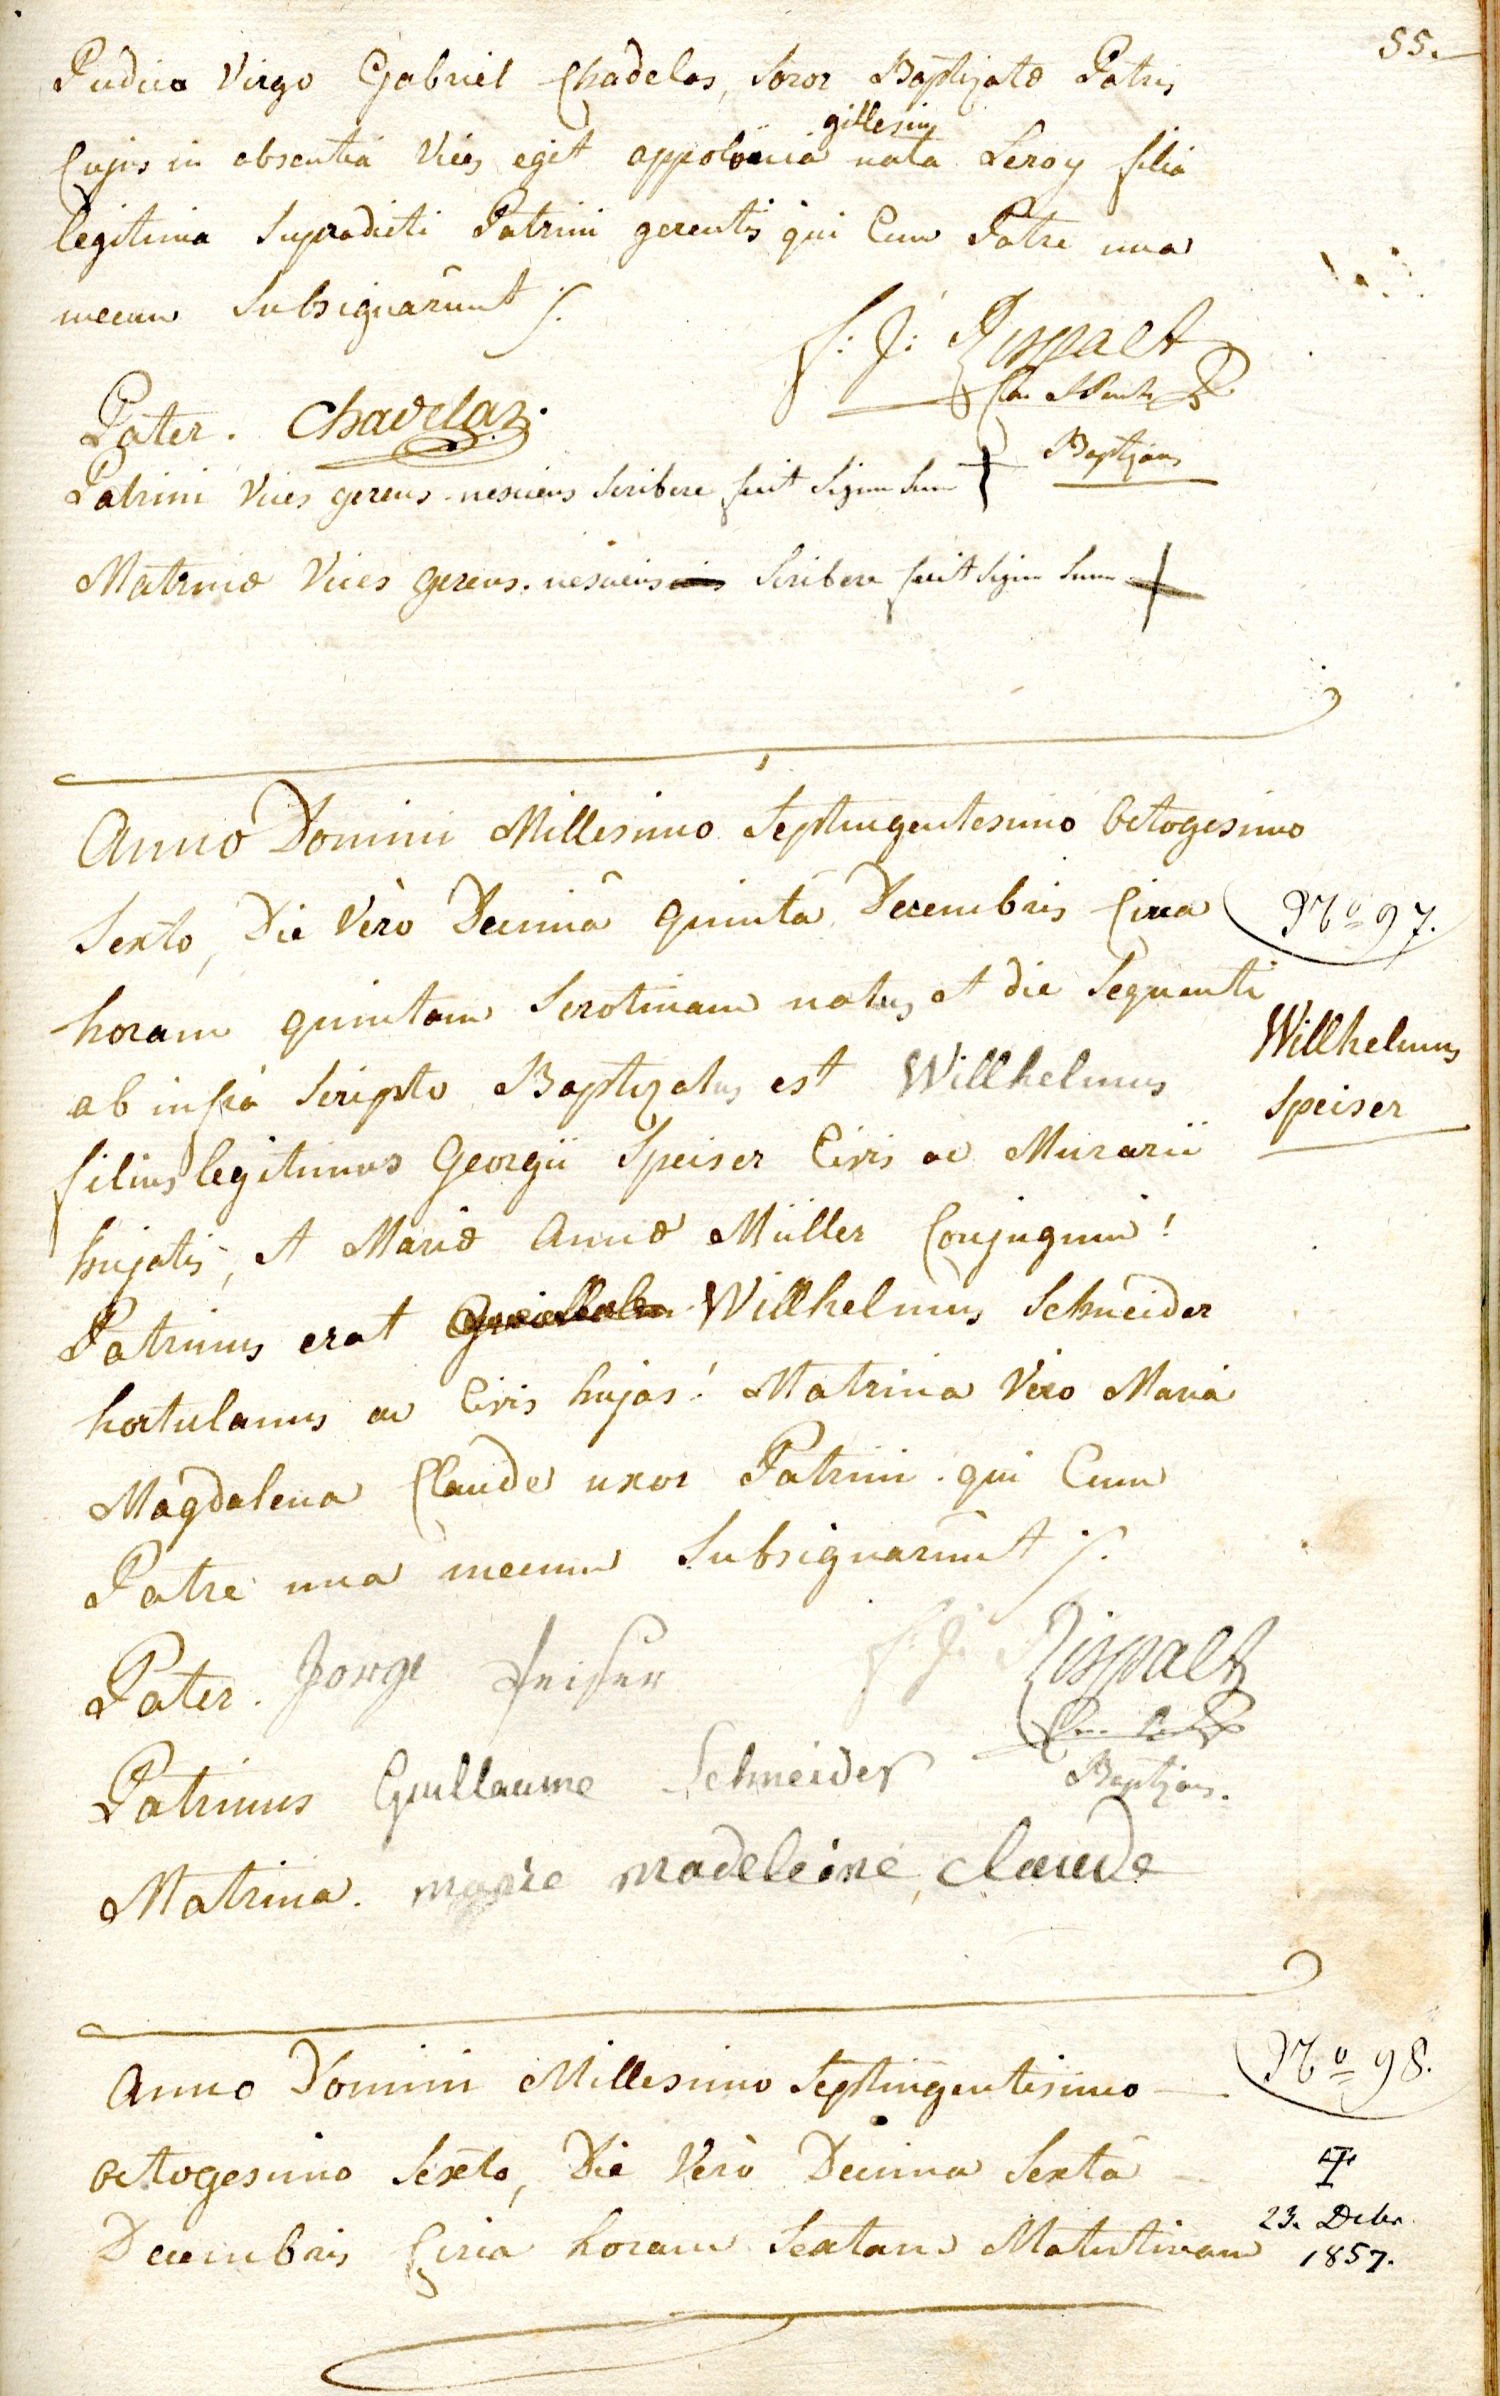 55.
Pudica Virgo Gabriel Chadelas, Soror Baptizatæ Patris
gillesin
Cujus in absentiâ Vices egit appolonia nata Leroy filia
legitima Supradicti Patrini gerentis qui Cum Patre una
mecum Subsignarunt /.
f: J: Rispalt
Pater. Chadelaz.
Baptizans
Patrini Vices gerens nesciens Scribere fecit Signum Suum +
Matrinæ Vices gerens. nesciens Scribere fecit Signum Suum +
Anno Domini Millesimo Septingentesimo Octogesimo
Sexto, Die Verò Decimâ quintâ Decembris Circa
No 97.
horam quintam Serotinam natus et die Sequenti
Willhelmus
ab infrà Scripto Baptizatus est Willhelmus
Speiser
filius legitimus Georgii Speiser Civis ac Murarii
hujatis, et Mariæ Annæ Müller Conjugum!
Patrinus erat Willhelmus Schneider
hortulanus ac Civis hujas! Matrina Vero Maria
Magdalena Claude uxor Patrini. qui Cum
Patre una mecum Subsignarunt /.
Pater. Jorge Speiser
f: J: Rispalt
Patrinus Guillaume Schneider
Baptizans.
Matrina. marie madeleine claude
Anno Domini Millesimo Septingentesimo
No 98.
Octogesimo Sexto, Die Verò Decima Sextâ
†
Decembris Circa horam Sextam Matutinam
23. Decbr.
1857.